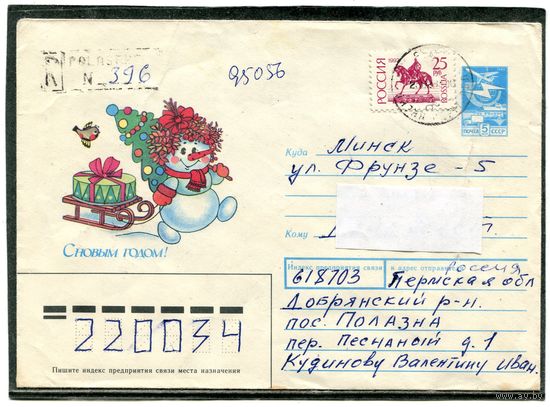 R POLAZNA
N 396
95056
РОССИЯ
1992
25
РУБ
ROSSIJA
5
ПОЧТА СССР
Куда Минск
ул. Фрунзе - 5
Кому
С НОВЫМ ГОДОМ!
Индекс предприятия связи и адрес отправителя
Россия
618703 Пермская обл
Добрянский р-н.
пос. Полазна
пер. Песчаный д. 1
Кудинову Валентину Иван.
220034
Пишите индекс предприятия связи места назначения
www.ay.by